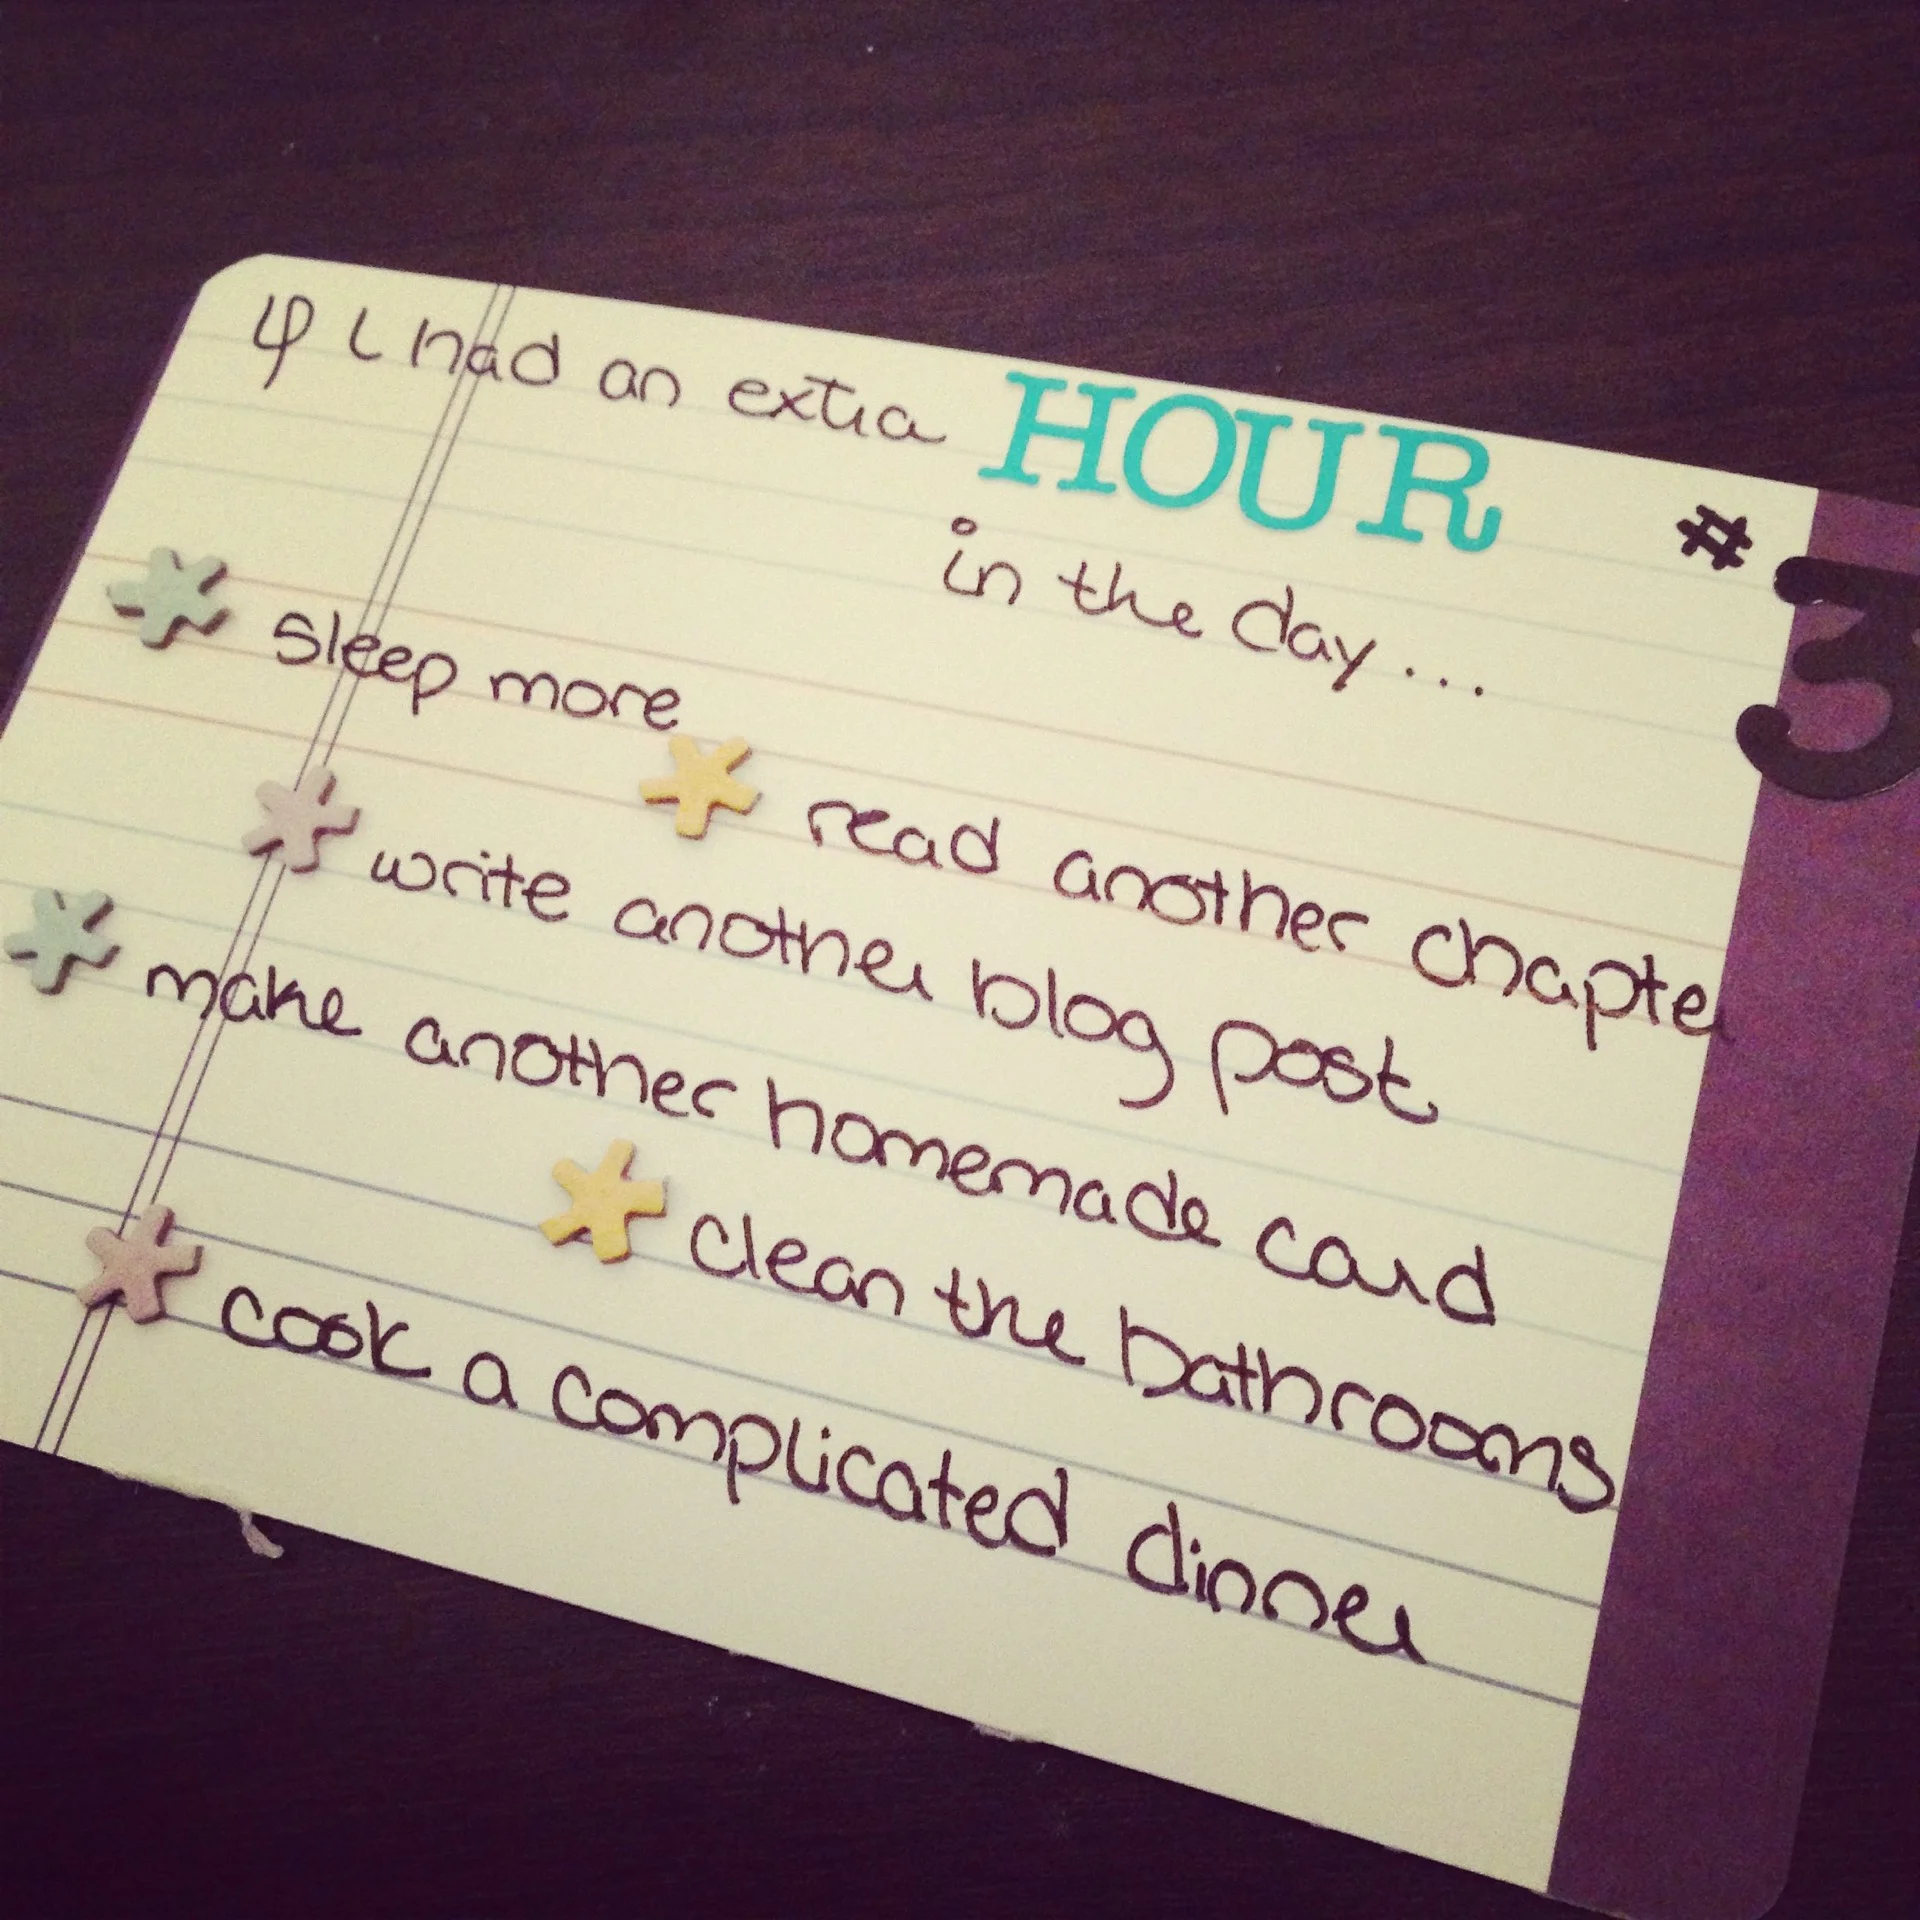 if i had an extra HOUR
in the day...
#3
sleep more
read another chapter
write another blog post
make another homemade card
clean the bathrooms
cook a complicated dinner